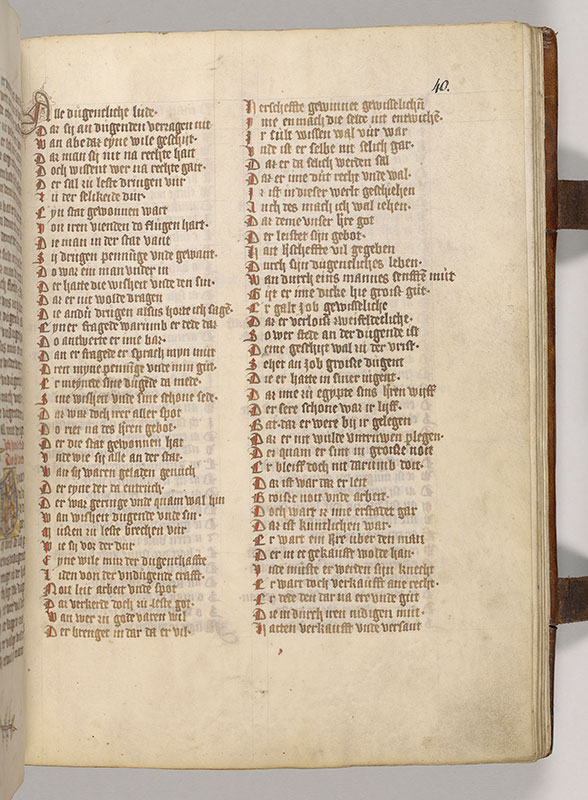 40.
Alle dugentliche lude.
Dar sij an dugenden verzagen nit
Wan abe dar eyne wile geschijt.
Dar man sij nit na rechte hait
Doch wissent wer na rechte gait.
Der sal zu leste dringen vur
Zu der selikeide dur.
Eyn stat gewonnen wart
Von iren vienden do flugen hart.
Die man in der stat vant
Sij drugen pennige vnde gewant.
Do was ein man vnder in
Der hatte die wisheit vnde den sin.
Dar er nit wolde dragen
Die andn drugen alsus horte ich sagen.
Eyner fragede warumb er dede dar
Do antworte er ime bar.
Dan er fragede er sprach myn mut
Dreit myne pennige vnde min gut.
Er meynete sine dugede da mede.
Sine wisheit vnde sine schone sede.
Dar was doch irer aller spot
Do riet na des hren gebot.
Der die stat gewonnen hat
Vnde wie sij alle an der stat.
Wan sij waren geladen genuch
Der eyne der da entruch.
Der war geringe vnde quam wal hin
Wan wisheit dugende vnde sin.
Musten zu leste brechen vur
Wie sij vor der dur
Eyne wile mus der dugenthaffte
Liden von der vndugende crafft.
Noit leit arbeit vnde spot
Dar verkerde doch zu leste got.
Wan wer zu gode varen wil
Der brenget in dar da er vil.
Herscheffte gewinnet gewisselichn
Yme en mach die selde nit entwichen.
Ir sult wissen wal vur war
Vnde ist er selbe nit selich gar.
Dar er da selich werden sal
Dar er ime dut recht vnde wal.
Ir ist in dieser werlt geschiehen
Auch des mach ich wal iehen.
Dar deme vnser hre got
Der leistet sijn gebot.
Hait hscheffte vil gegeben
Durch sijn dugentliches leben.
Wan durch eins mannes senfften mut
Gijt er ime dicke hie groist gut.
Er galt Job gewisseliche
Dar er verlois zwifeldecliche.
So wer stede an der dugende ist
Deme geschijt wal zu der vrist.
Sehet an Job groisse dugent
Die er hatte in siner iugent.
Dar ime zu egypte sins hren wijff
Der sere schone war ir lijff.
Bat dar er were bij ir gelegen
Dar er nit wulde vntruwen plegen.
Der quam er sint in groisse noit
Er bleiff doch nit darumb doit.
Dar ist war dar er leit
Groisse noit vnde arbeit.
Doch wart ir ime erstadet gar
Dar ist kuntlichen war.
Er wart ein hre uber den man
Der in et gekaufft wolde han.
Vnde muste er werden sijn knecht
Er wart doch verkaufft ane recht.
Er dede den dar na ere vnde gut
Die in durch iren nidigen mut.
Hatten verkaufft vnde versant